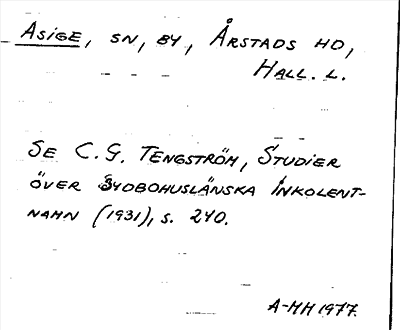 ASIGE, SN, BY, ÅRSTADS HD,
HALL. L.
SE C. G. TENGSTRÖM, STUDIER
ÖVER SYDBOHUSLÄNSKA INKOLENT-
NAMN (1931), S. 240.
A-MH 1977.